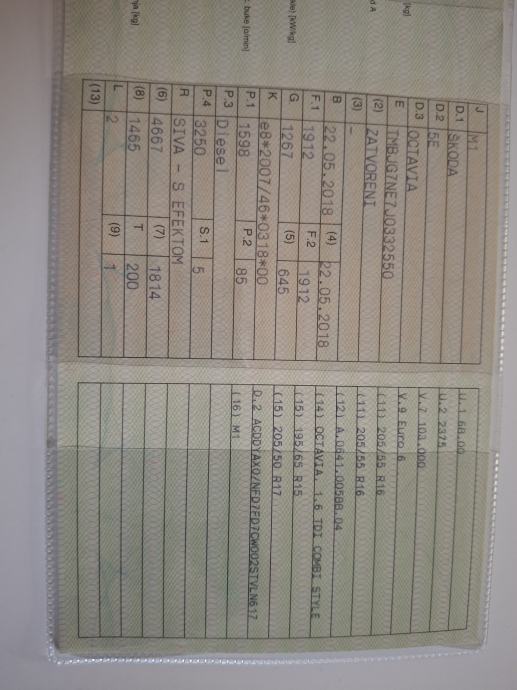 J M1
D.1 ŠKODA
D.2 5E
D.3 OCTAVIA
E TMBJG7NE7J0332550
(2) ZATVORENI
(3) –
B 22.05.2018 (4) 22.05.2018
F.1 1912 F.2 1912
G 1267 (5) 645
K e8*2007/46*0318*00
P.1 1598 P.2 85
P.3 Diesel
P.4 3250 S.1 5
R SIVA - S EFEKTOM
(6) 4667 (7) 1814
(8) 1465 T 200
L 2 (9) 1
(13)
U.1 68.00
U.2 2375
V.7 103.000
V.9 Euro 6
(11) 205/55 R16
(11) 205/55 R16
(12) A.0641.00588.04
(14) OCTAVIA 1.6 TDI COMBI STYLE
(15) 195/65 R15
(15) 205/50 R17
D.2 ACDDYAX0/NFD7FD7CW002STVLN617
(16) M1
[kg]
[kW/kg]
buke [o/min]
[kg]